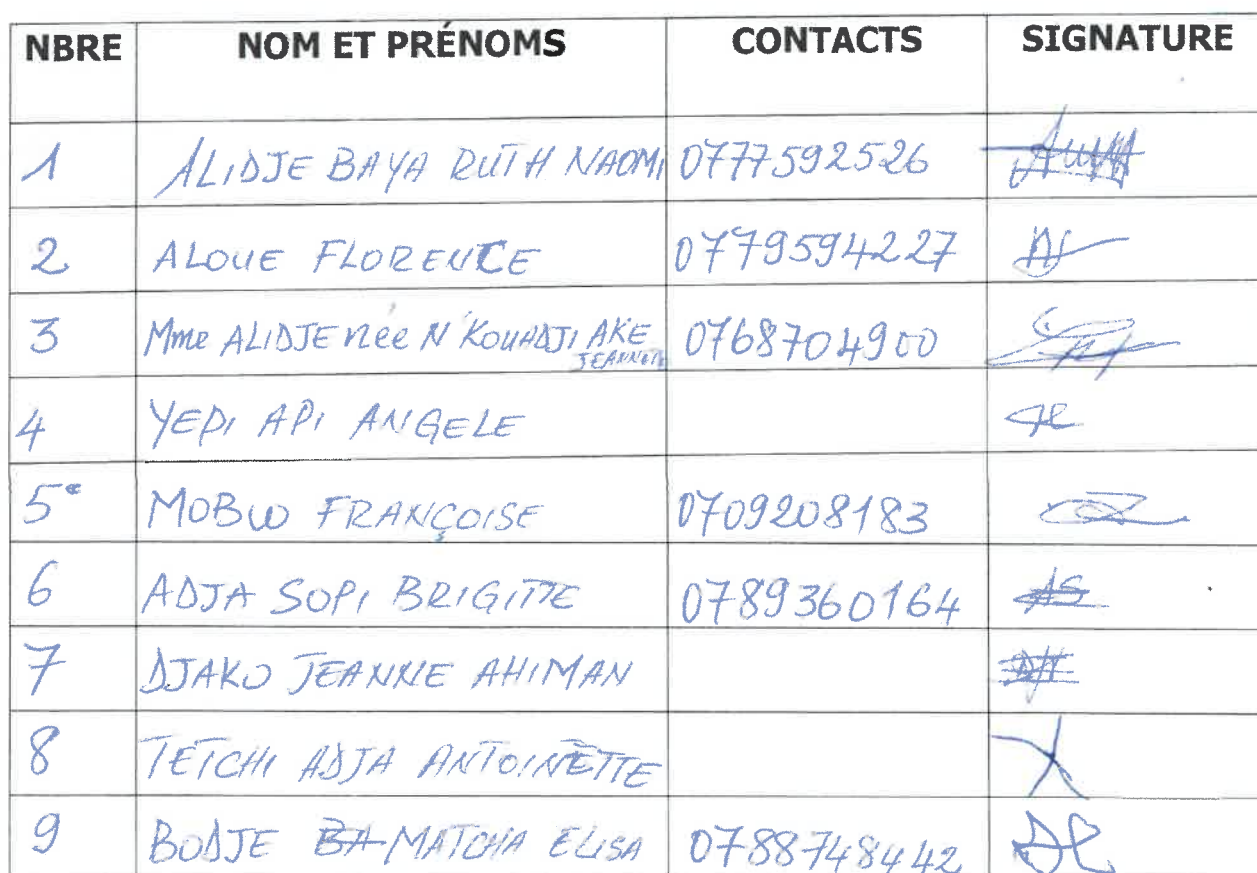 NBRE NOM ET PRÉNOMS CONTACTS SIGNATURE
1 ALIDJE BAYA RUTH NAOMI 0777592526
2 ALOUE FLORENCE 0779594227
3 Mme ALIDJE née N'KOUADJI AKE JEANNETTE 0768704900
4 YEDI API ANGELE
5 MOBIO FRANÇOISE 0709208183
6 ADJA SOPI BRIGITTE 0789360164
7 DJAKO JEANNE AHIMAN
8 TETCHI ADJA ANTOINETTE
9 BODJE BA MATCHA ELISA 0788748442